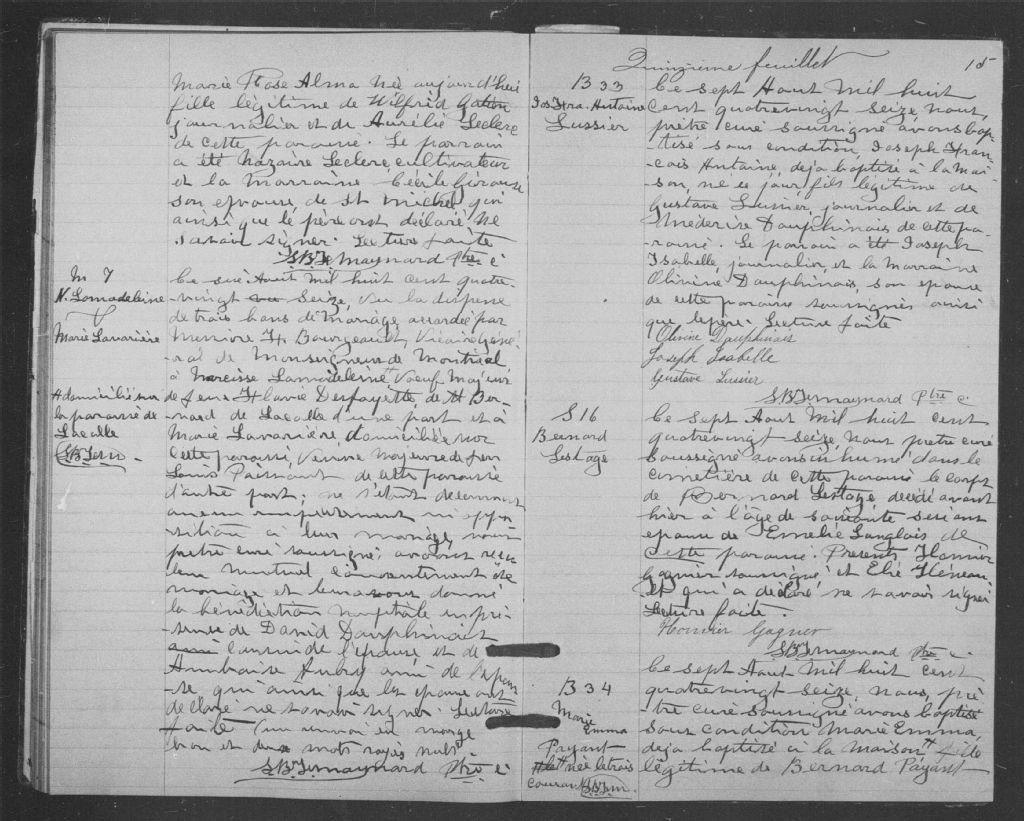 Marie Rose Alma née aujourd'hui
fille légitime de Wilfrid
journalier et de Aurélie Leclerc
de cette paroisse. Le parrain
a été Nazaire Leclerc, cultivateur
et la Marraine Cécile Giroux
son épouse de St Michel qui
ainsi que le père ont déclaré ne
savoir signer. Lecture faite
Maynard Ptre c
M 7
N. Lamadeleine
Marie Lavarière
Le six Août mil huit cent quatre
-vingt seize, vu la dispense
de trois bans de mariage accordée par
Messire H Bourgeault, Vicaire géné
ral de Monseigneur de Montréal
à Narcisse Lamadeleine H Veuf Majeur
H domicilié sur
la paroisse de
Lacolle
de feue Flavie Desfayette de St Ber-
nard de Lacolle d'une part et à
Marie Lavarière, domiciliée sur
cette paroisse, Veuve Majeure de feu
Louis Paissant de cette paroisse
d'autre part; ne s'étant découvert
aucun empêchement ni oppo
sition à leur mariage, nous
prêtre curé soussigné avons reçu
leur mutuel consentement de
mariage et leur avons donné
la bénédiction nuptiale en pré
sence de David Dauphinais
ami cousin de l'épouse et de
Ambroise Aubry ami de l'épou
-se qui ainsi que les époux ont
déclaré ne savoir signer. Lecture
faite (un renvoi en marge
bon et deux mots rayés nuls
Maynard Ptre c
Quinzième feuillet 15
B 33
Jos. Fra. Antoine
Lussier
Le sept Août mil huit
cent quatrevingt seize, nous,
prêtre curé soussigné avons bap
tisé sous condition, Joseph Fran
çois Antoine, deja baptisé à la mai
son, né ce jour, fils légitime de
Gustave Lussier, journalier et de
Mederise Dauphinais de cette pa-
roisse. Le parrain a été Joseph
Isabelle, journalier, et la Marraine
Olivine Dauphinais, son epouse
de cette paroisse soussignés ainsi
que le père. Lecture faite
Olivine Dauphinais
Joseph Isabelle
Gustave Lussier
Maynard Ptre c.
S 16
Bernard
Lestage
Le sept Août mil huit cent
quatrevingt seize, nous prêtre curé
soussigné avons inhumé dans le
cimetière de cette paroisse le corps
de Bernard Lestage décédé avant
hier à l'âge de soixante seize ans
epoux de Emelie Langlois de
cette paroisse. Présents Homier
Gagnier soussigné et Elie Héneau
qui a déclaré ne savoir signer
Lecture faite.
Homier Gagner
Maynard Ptre c.
B 34
Marie
Emma
Payant
H née le trois
courant
Le sept Août mil huit cent
quatrevingt seize, nous, prê
tre curé soussigné avons baptisé
sous condition Marie Emma,
deja baptisé à la Maison H fille
légitime de Bernard Payant